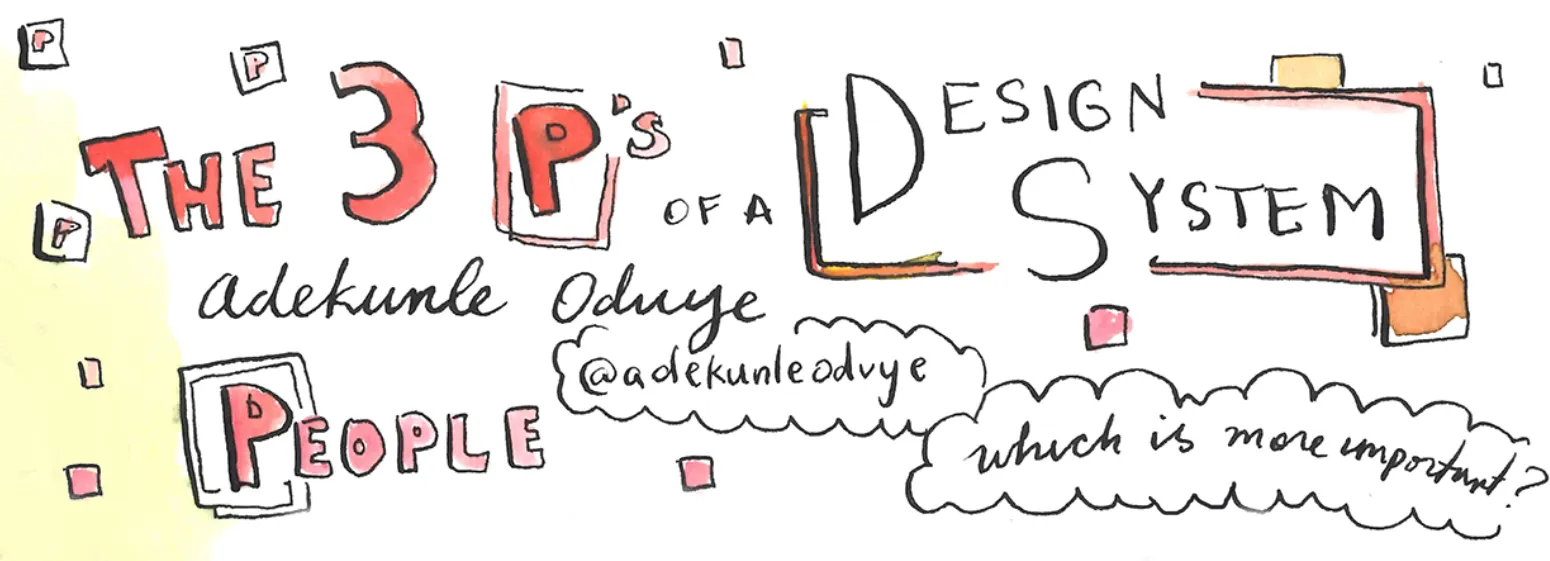 P
P
THE 3 P's OF A DESIGN SYSTEM
P
adekunle Oduye
@adekunleoduye
PEOPLE
which is more important?